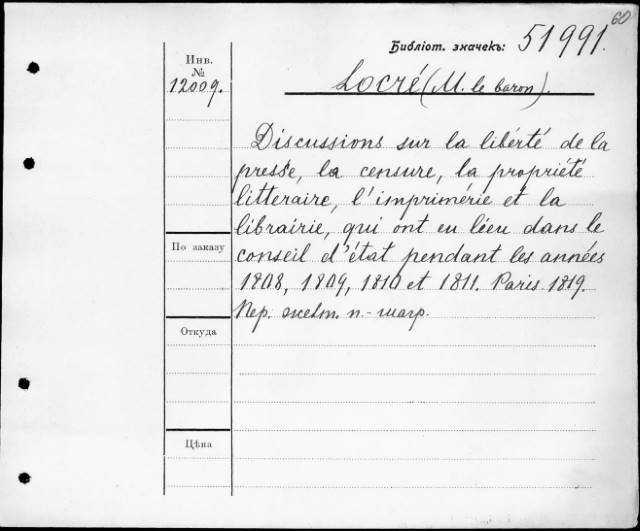 60
Библіот. значекъ: 51991.
Инв.
№
12009.
Locré (M. le baron).
Discussions sur la libérté de la
presse, la censure, la propriété
litteraire, l'imprimérie et la
librairie, qui ont eu léeu dans le
conseil d'état pendant les années
1808, 1809, 1810 et 1811. Paris 1819.
Пер. желт. п.-шагр.
По заказу
Откуда
Цѣна